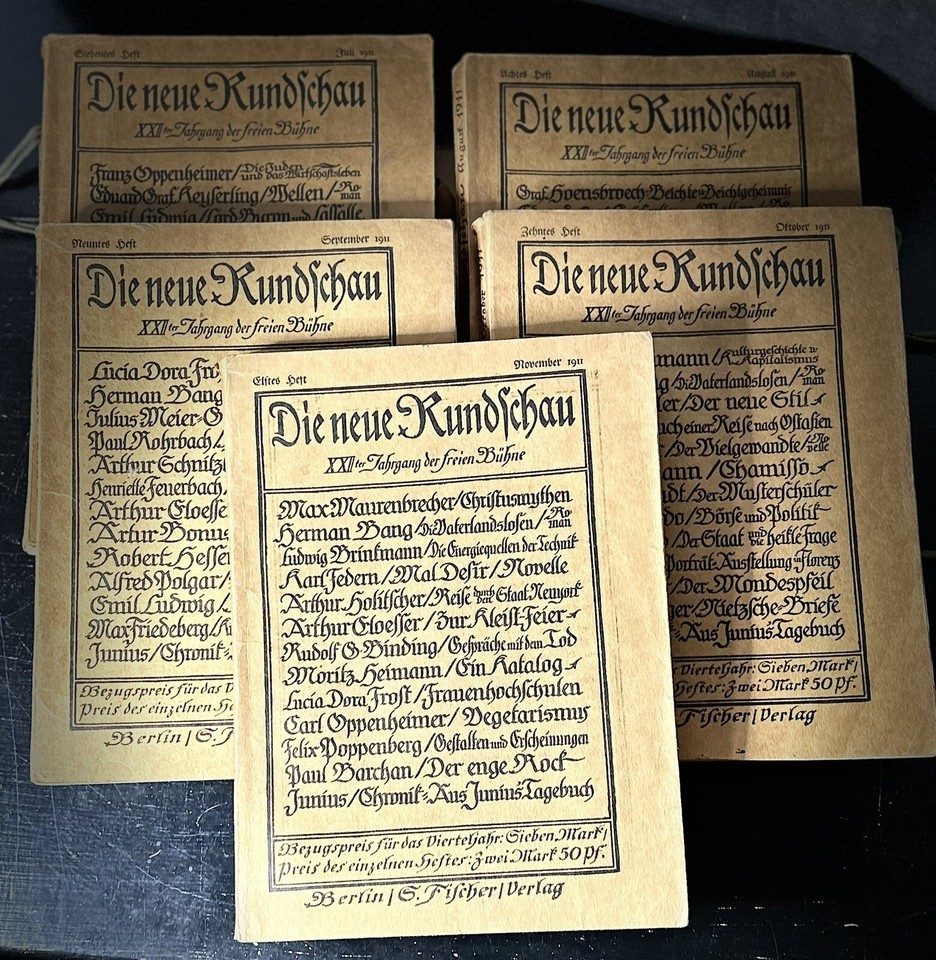 Siebentes Heft Juli 1911
Die neue Rundschau
XXIIter Jahrgang der freien Bühne
Franz Oppenheimer/Die Juden und das Wirtschaftsleben
Eduard Graf Keyserling/Wellen/Roman
Emil Ludwig/Lord Byron und Lassalle
Achtes Heft August 1911
Die neue Rundschau
XXIIter Jahrgang der freien Bühne
Graf Hoensbroech-Beichte-Beichtgeheimnis
August 1911
Neuntes Heft September 1911
Die neue Rundschau
XXIIter Jahrgang der freien Bühne
Lucia Dora Fro
Herman Bang
Julius Meier-G
Paul Rohrbach/
Arthur Schnitzl
Henriette Feuerbach
Arthur Eloesse
Artur Bonus
Robert Hesse
Alfred Polgar/
Emil Ludwig/
Max Friedeberg/K
Junius/Chronik
Bezugspreis für das V
Preis des einzelnen He
Berlin/S. F
Zehntes Heft Oktober 1911
Die neue Rundschau
XXIIter Jahrgang der freien Bühne
mann/Kulturgeschichte u. Kapitalismus
g/Die Vaterlandslosen/Roman
ler/Der neue Stil
uch einer Reise nach Ostasien
/Der Vielgewandte/Novelle
ann/Chamisso
dt/Der Musterschüler
do/Börse und Politik
/Der Staat und die heikle Frage
Porträt-Ausstellung in Florenz
/Der Mondespfeil
er/Nietzsche-Briefe
Aus Junius' Tagebuch
Vierteljahr: Sieben Mark/
Heftes: Zwei Mark 50 Pf.
Fischer/Verlag
Elftes Heft November 1911
Die neue Rundschau
XXIIter Jahrgang der freien Bühne
Max Maurenbrecher/Christusmythen
Herman Bang/Die Vaterlandslosen/Roman
Ludwig Brinkmann/Die Energiequellen der Technik
Karl Federn/Mal Desir/Novelle
Arthur Holitscher/Reise durch den Staat Newyork
Arthur Eloesser/Zur Kleist-Feier
Rudolf G. Binding/Gespräche mit dem Tod
Moritz Heimann/Ein Katalog
Lucia Dora Frost/Frauenhochschulen
Carl Oppenheimer/Vegetarismus
Felix Poppenberg/Gestalten und Erscheinungen
Paul Barchan/Der enge Rock
Junius/Chronik-Aus Junius' Tagebuch
Bezugspreis für das Vierteljahr: Sieben Mark/
Preis des einzelnen Heftes: Zwei Mark 50 Pf.
Berlin/S. Fischer/Verlag